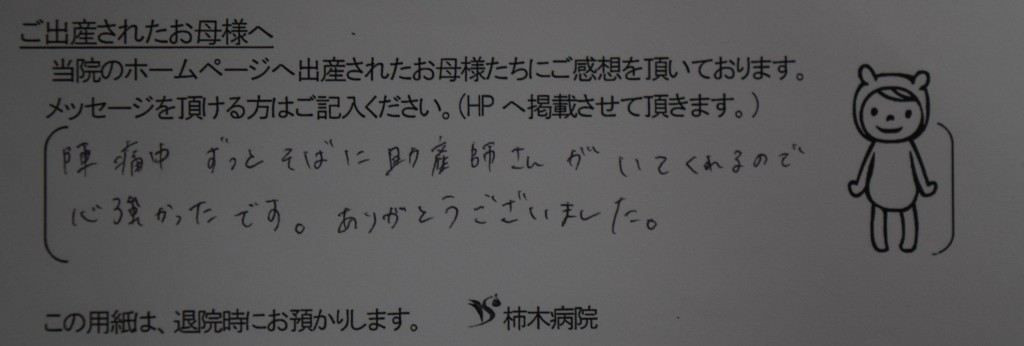 ご出産されたお母様へ
当院のホームページへ出産されたお母様たちにご感想を頂いております。
メッセージを頂ける方はご記入ください。(HPへ掲載させて頂きます。)
陣痛中 ずっとそばに助産師さんがいてくれるので
心強かったです。ありがとうございました。
この用紙は、退院時にお預かりします。 柿木病院